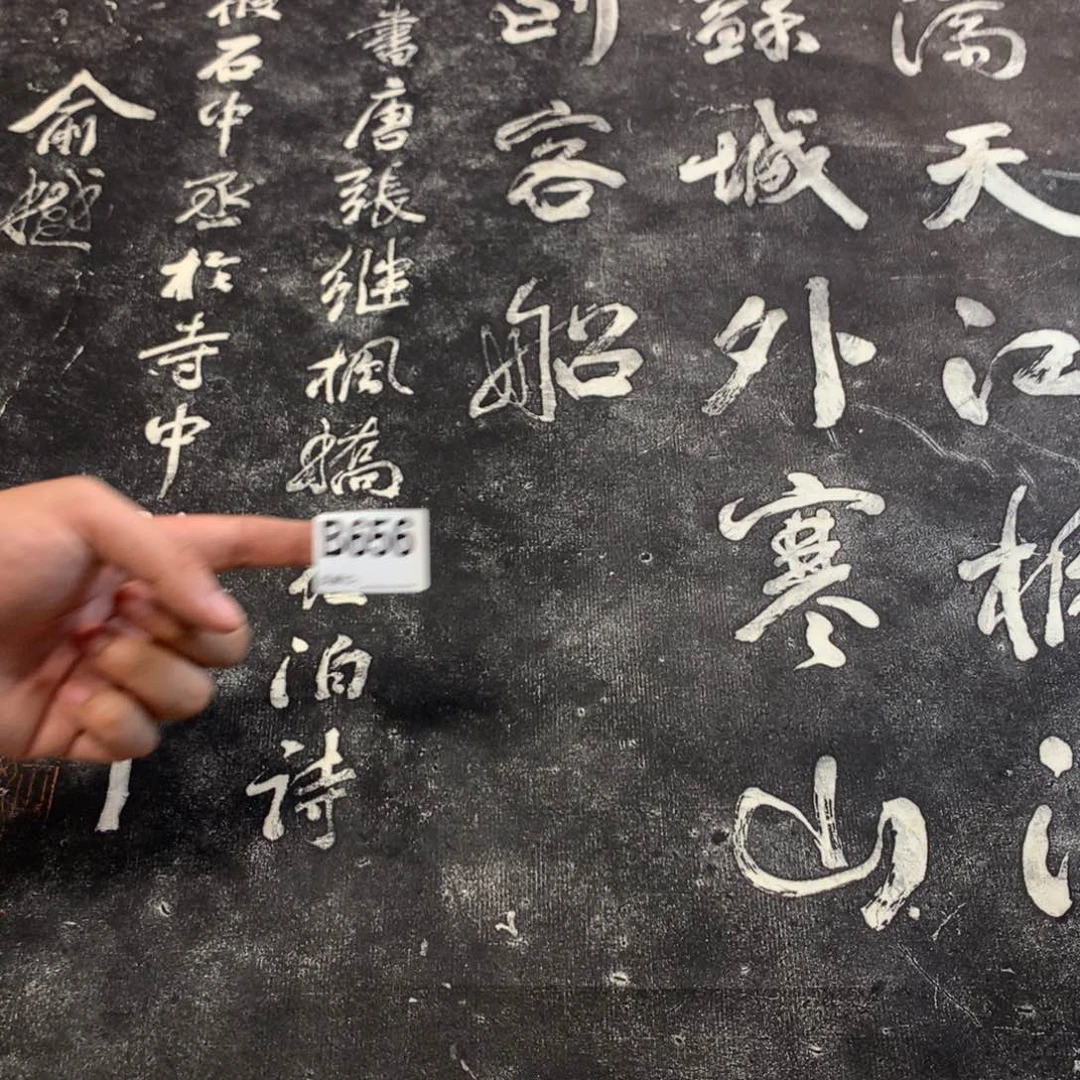 滿天江楓
蘇城外寒山
到客船
書唐張繼楓橋
泊詩
石中丞於寺中
俞樾
B656